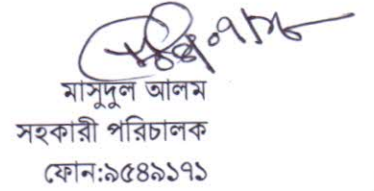 মাসুদুল আলম
সহকারী পরিচালক
ফোন:৯৫৪৯১৭১